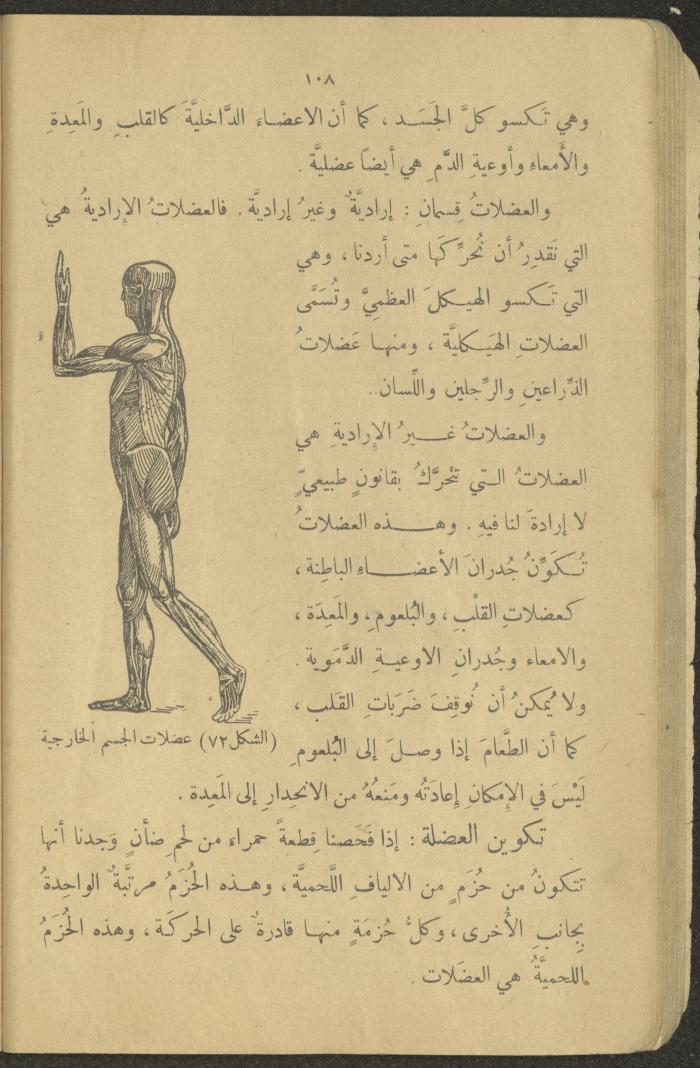 ١٠٨
وهي تَكسو كلَّ الجَسَد ، كما أن الاعضاء الدَّاخليَّةَ كالقلبِ والمَعِدةِ
والأَمعاءِ وأوعيةِ الدَّمِ هي أيضاً عضليَّة .
والعضلاتُ قِسمانِ : إراديَّةٌ وغيرُ إراديَّة . فالعضلاتُ الإراديةُ هي
التي نَقدِرُ أن نُحرِّكَها متى أردنا ، وهي
التي تَكسو الهيكلَ العظميَّ وتُسَمَّى
العضلاتِ الهَيكليَّة ، ومنها عَضلاتُ
الذِّراعينِ والرِّجلين واللِّسان .
والعضلاتُ غيرُ الإراديةِ هي
العضلاتُ التي تتحرَّكُ بقانونٍ طبيعيٍّ
لا إرادةَ لنا فيهِ . وهذه العضلاتُ
تُكوِّنُ جُدرانَ الأعضاءِ الباطِنة ،
كعضلاتِ القلْبِ ، والبُلعومِ ، والمَعِدَة ،
والامعاء وجُدرانِ الاوعيةِ الدَّمَوية .
ولا يُمكنُ أن نُوقِفَ ضَرَباتِ القَلب ،
كما أن الطَّعامَ إذا وصلَ إلى البُلعومِ
(الشكل ٧٢) عضلات الجسم الخارجية
لَيْسَ في الإمكانِ إعادَتُه ومَنعُهُ من الانحِدارِ إلى المَعِدة .
تكوين العضلة : إذا فَحَصنا قِطعةً حمراء من لحمِ ضأنٍ وَجدنا أنها
تتكونُ من حُزَمٍ من الالياف اللَّحميَّة ، وهذه الحُزَمُ مرتبَّةٌ الواحِدةُ
بِجانبِ الأُخرى ، وكلُّ حُزمَةٍ منها قادرةٌ على الحركَة ، وهذه الحُزَمُ
اللحميَّةُ هي العضَلات .